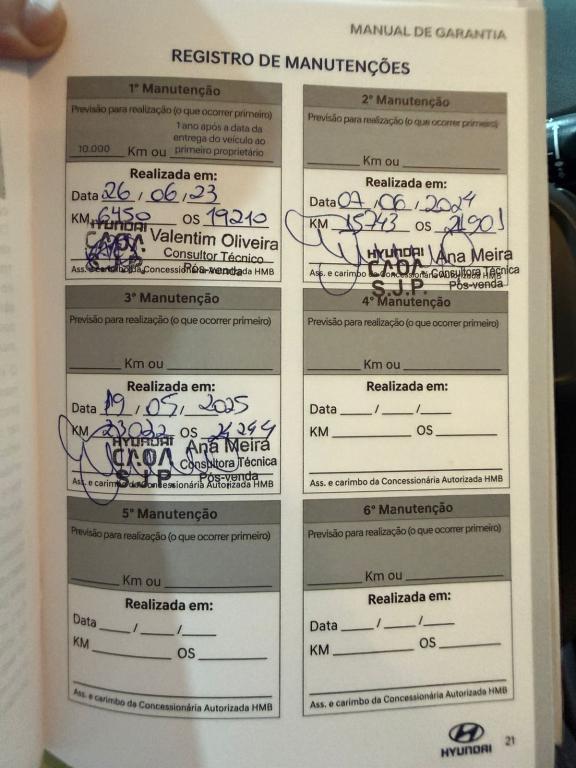 MANUAL DE GARANTIA
REGISTRO DE MANUTENÇÕES
1º Manutenção
Previsão para realização (o que ocorrer primeiro)
10.000 Km ou 1 ano após a data da
entrega do veículo ao
primeiro proprietário
Realizada em:
Data 26 / 06 / 23
KM 6450 OS 19210
HYUNDAI
CAOA Valentim Oliveira
Consultor Técnico
Pós-venda
Ass. e carimbo da Concessionária Autorizada HMB
2º Manutenção
Previsão para realização (o que ocorrer primeiro)
Km ou
Realizada em:
Data 07 / 06 / 2024
KM 15743 OS 21901
HYUNDAI Ana Meira
CAOA Consultora Técnica
S.J.P. Pós-venda
Ass. e carimbo da Concessionária Autorizada HMB
3º Manutenção
Previsão para realização (o que ocorrer primeiro)
Km ou
Realizada em:
Data 19 / 05 / 2025
KM 23022 OS 24294
HYUNDAI Ana Meira
CAOA Consultora Técnica
S.J.P Pós-venda
Ass. e carimbo da Concessionária Autorizada HMB
4º Manutenção
Previsão para realização (o que ocorrer primeiro)
Km ou
Realizada em:
Data / /
KM OS
Ass. e carimbo da Concessionária Autorizada HMB
5º Manutenção
Previsão para realização (o que ocorrer primeiro)
Km ou
Realizada em:
Data / /
KM OS
Ass. e carimbo da Concessionária Autorizada HMB
6º Manutenção
Previsão para realização (o que ocorrer primeiro)
Km ou
Realizada em:
Data / /
KM OS
Ass. e carimbo da Concessionária Autorizada HMB
HYUNDAI
21